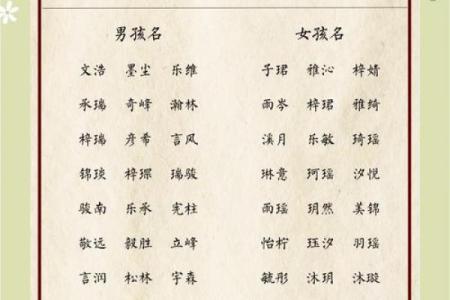 男孩名 女孩名
文浩 墨尘 乐维 子珺 雅沁 梓婧
承瑞 奇峰 瀚林 雨岑 梓珺 雅绮
梓瑞 彦希 言风 溪月 乐敏 琦瑶
锦琰 梓琛 瑞骏 琳意 珂瑶 汐悦
骏南 乐承 宪柱 雨瑶 玥然 美锦
敬远 毅胜 立峰 怡柠 珏汐 羽瑶
言润 松林 宇森 毓彤 沐玥 沐璇